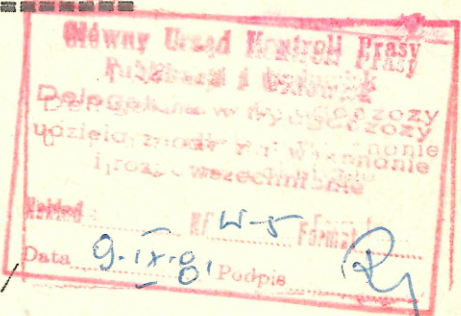 Główny Urząd Kontroli Prasy
Publikacji i Widowisk
Delegatura w Bydgoszczy
udziela zgody na wykonanie
i rozpowszechnianie
Nakład Nr W-5 Format
Data 9.IX.81 Podpis